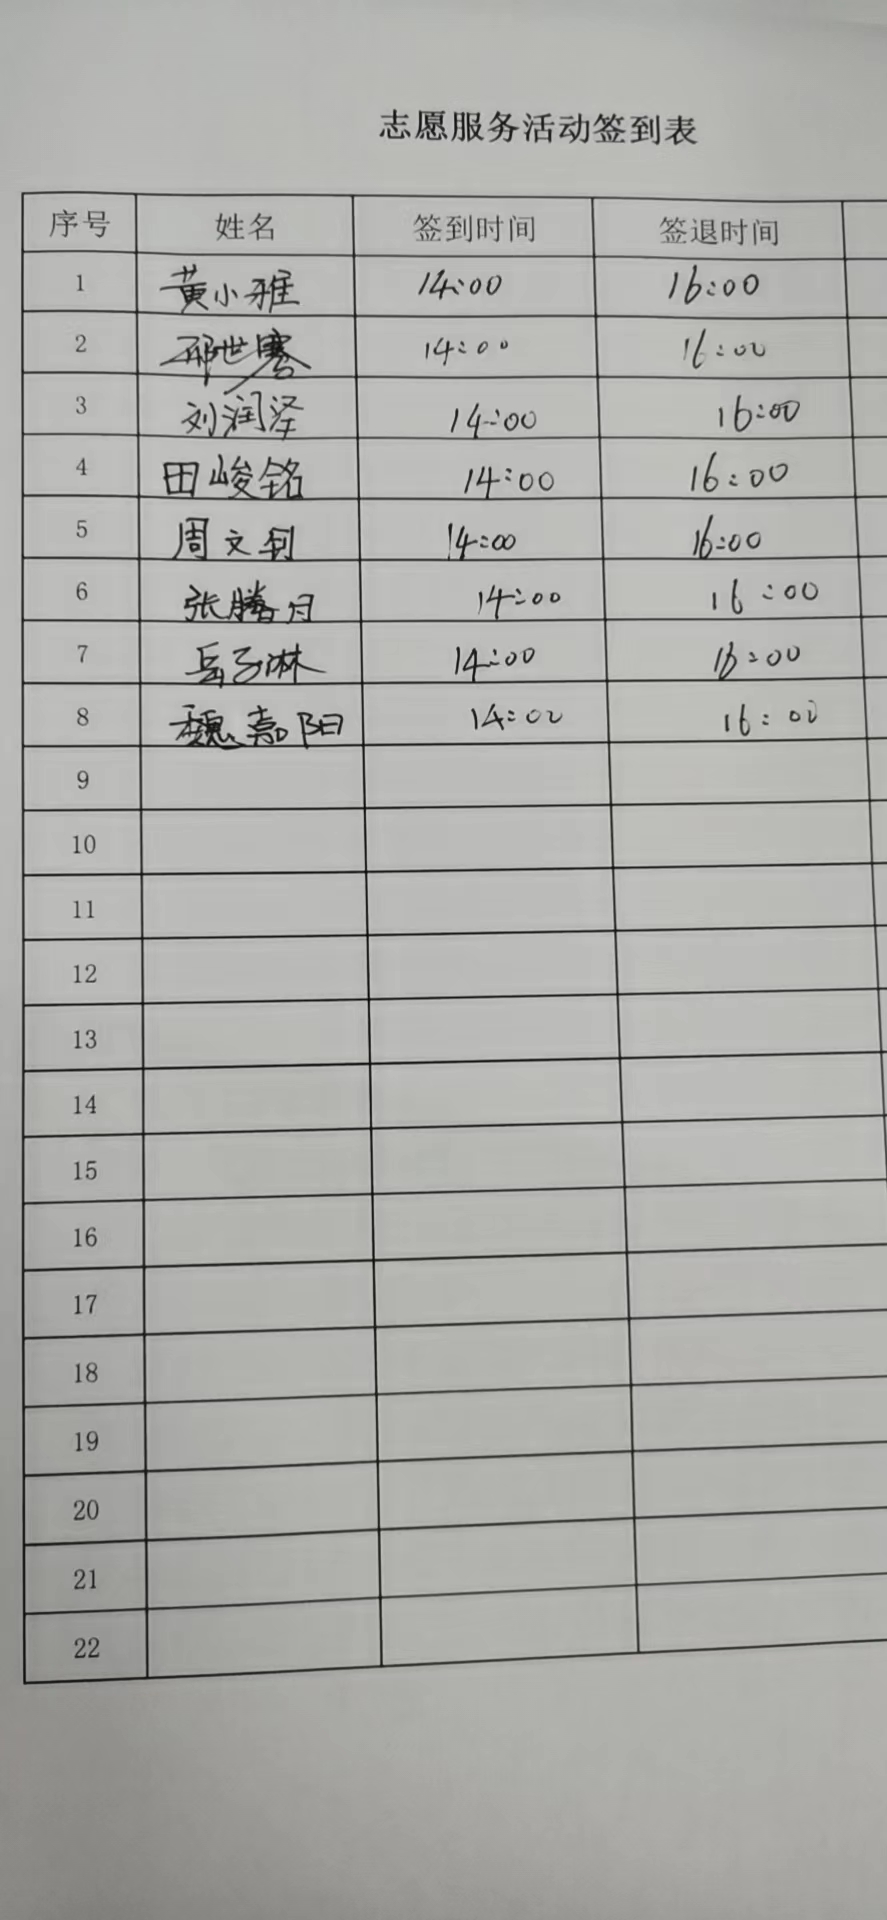 志愿服务活动签到表
序号 姓名 签到时间 签退时间
1 黄小雅 14:00 16:00
2 邢世骞 14:00 16:00
3 刘润泽 14:00 16:00
4 田峻铭 14:00 16:00
5 周文 14:00 16:00
6 张腾月 14:00 16:00
7 岳子淋 14:00 16:00
8 魏嘉阳 14:00 16:00
9
10
11
12
13
14
15
16
17
18
19
20
21
22